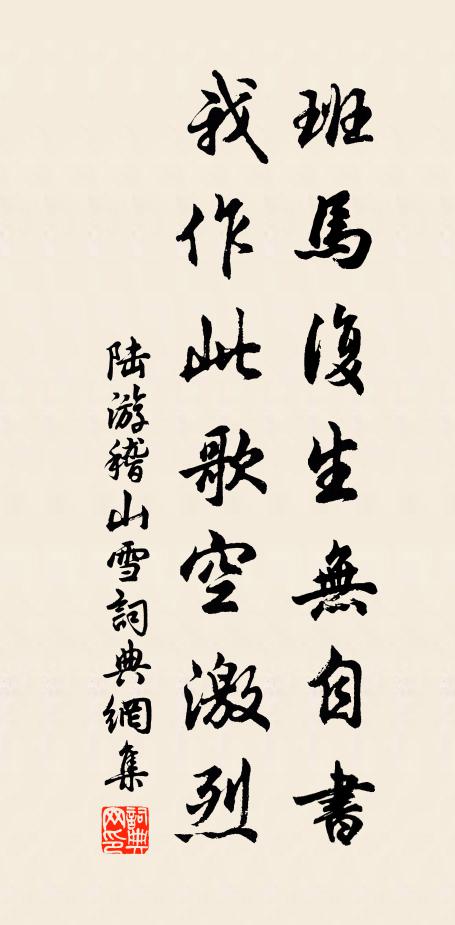 班馬復生無自書
我作此歌空激烈
陆游稽山雪詞典網集
詞典网印